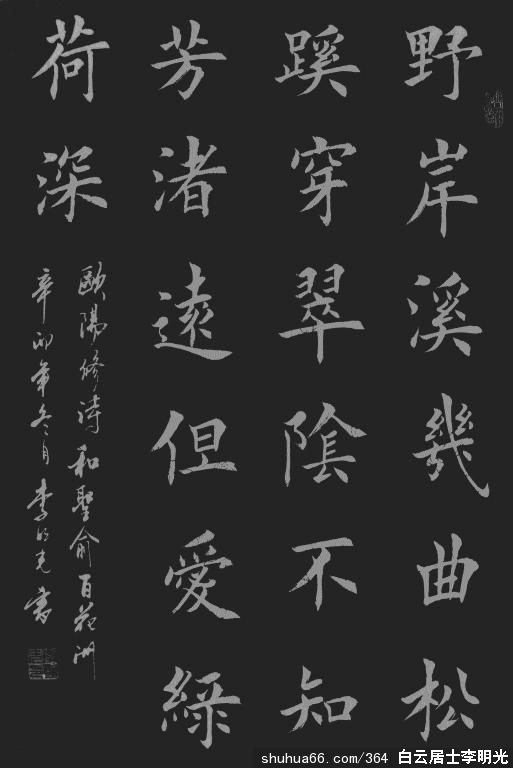 野岸溪幾曲松
蹊穿翠陰不知
芳渚遠但愛綠
荷深
歐陽修詩和聖俞百花洲
辛卯年冬月李明光書
shuhua66.com/364 白云居士李明光